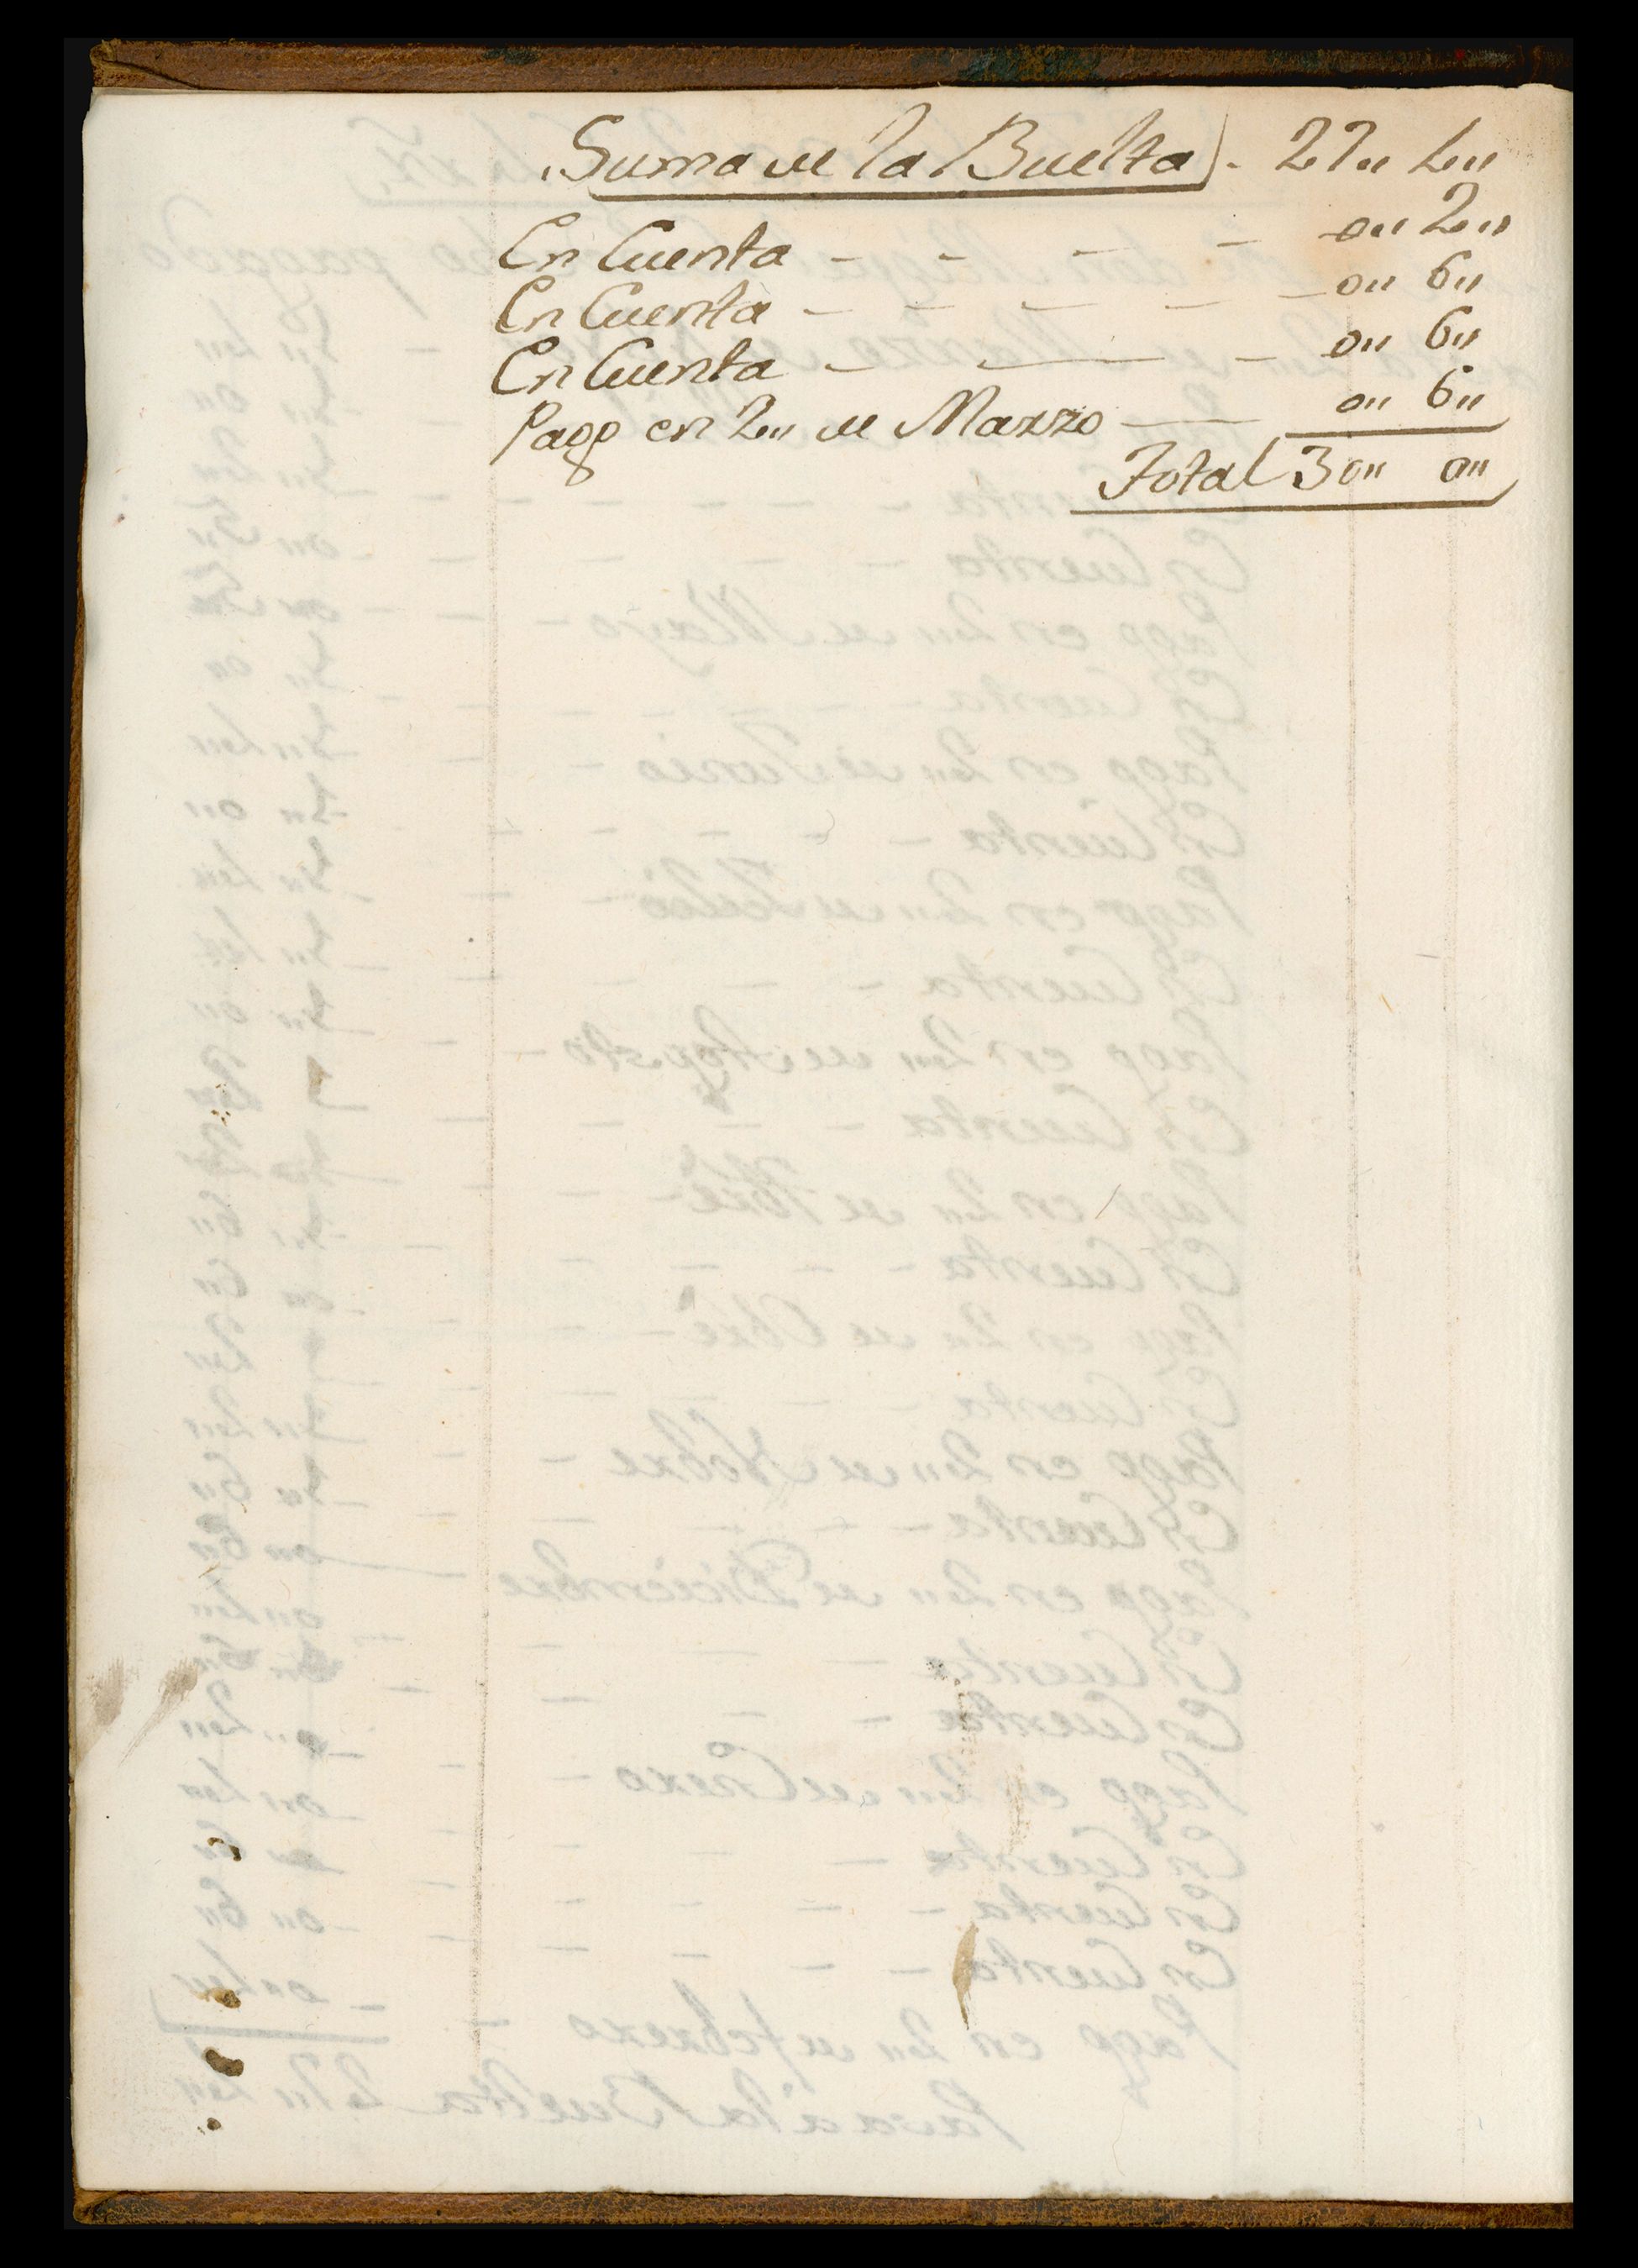 Suma de la Buelta) - 27" 4"
En Cuenta - - - - 0" 2"
En Cuenta - - - - - 0" 6"
En Cuenta - - - 0" 6"
Pago en 2" de Marzo - 0" 6"
Total 30" 0"